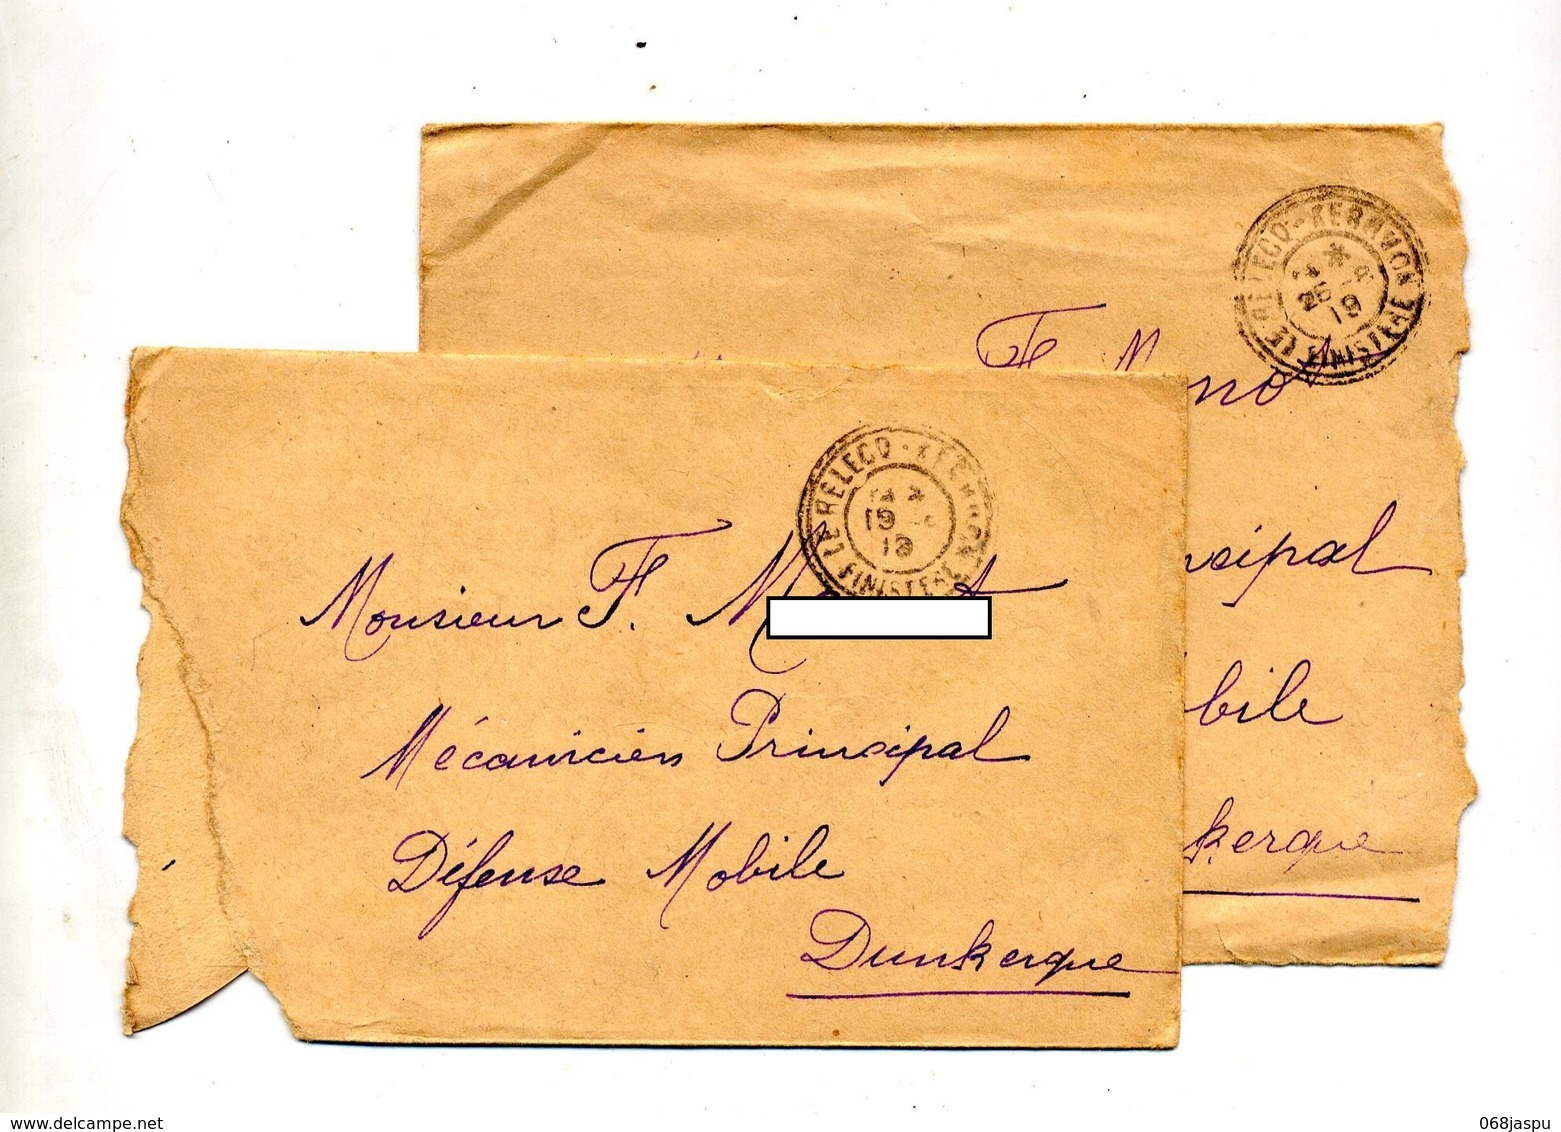 LE RELECQ - KERHUON
25
19
FINISTERE
F.
ncipal
bile
kerque
LE RELECQ - KERHUON
19
19
FINISTERE
Monsieur F. M t
Mécanicien Principal
Défense Mobile
Dunkerque
www.delcampe.net
068jaspu